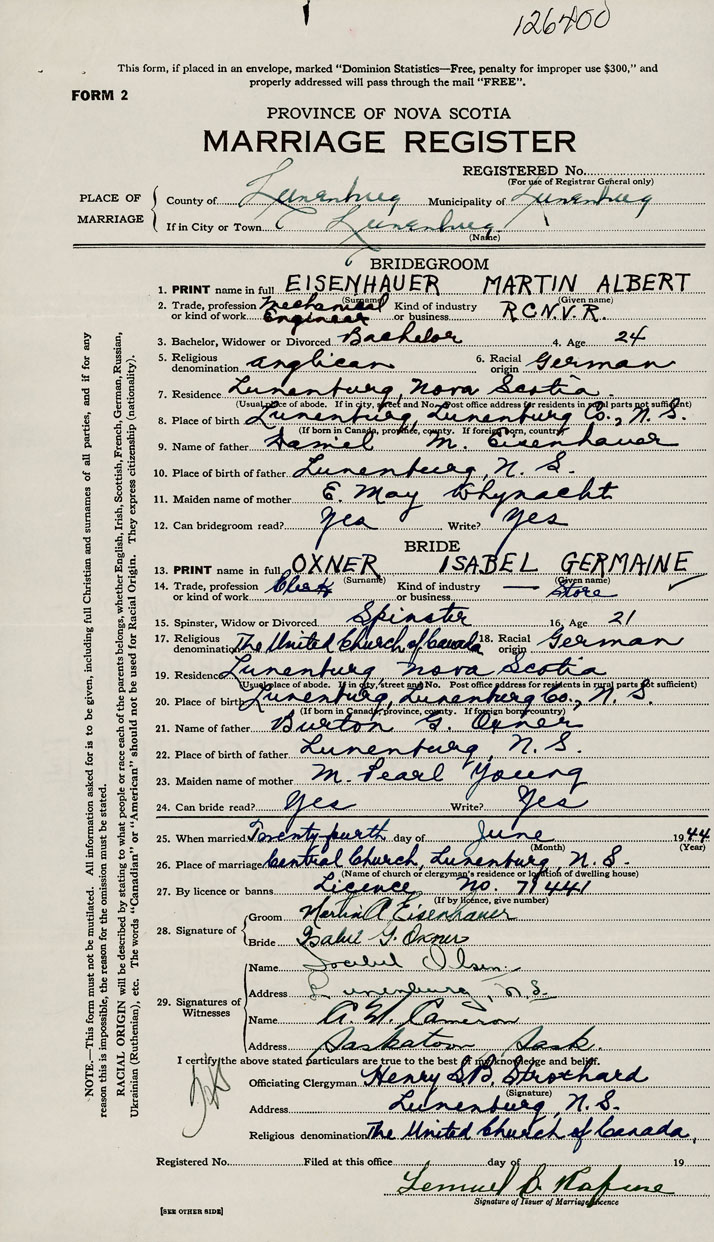 126400
This form, if placed in an envelope, marked “Dominion Statistics—Free, penalty for improper use $300,” and
properly addressed will pass through the mail “FREE”.
FORM 2
PROVINCE OF NOVA SCOTIA
MARRIAGE REGISTER
REGISTERED No.
(For use of Registrar General only)
PLACE OF MARRIAGE
County of Lunenburg Municipality of Lunenburg
If in City or Town Lunenburg
(Name)
BRIDEGROOM
1. PRINT name in full EISENHAUER MARTIN ALBERT
(Surname) (Given name)
2. Trade, profession or kind of work Mechanical Engineer Kind of industry or business R.C.N.V.R.
3. Bachelor, Widower or Divorced Bachelor 4. Age 24
5. Religious denomination anglican 6. Racial origin German
7. Residence Lunenburg, Nova Scotia
(Usual place of abode. If in city, street and No. Post office address for residents in rural parts not sufficient)
8. Place of birth Lunenburg, Lunenburg Co., N. S.
(If born in Canada, province, county. If foreign born, country)
9. Name of father Daniel M. Eisenhauer
10. Place of birth of father Lunenburg, N. S.
11. Maiden name of mother E. May Whynacht
12. Can bridegroom read? Yes Write? Yes
BRIDE
13. PRINT name in full OXNER ISABEL GERMAINE
(Surname) (Given name)
14. Trade, profession or kind of work Clerk Kind of industry or business — Store
15. Spinster, Widow or Divorced Spinster 16. Age 21
17. Religious denomination The United Church of Canada 18. Racial origin German
19. Residence Lunenburg Nova Scotia
(Usual place of abode. If in city, street and No. Post office address for residents in rural parts not sufficient)
20. Place of birth Lunenburg, Lunenburg Co., N. S.
(If born in Canada, province, county. If foreign born, country)
21. Name of father Burton G. Oxner
22. Place of birth of father Lunenburg, N. S.
23. Maiden name of mother M. Pearl Young
24. Can bride read? Yes Write? Yes
25. When married Twenty-fourth day of June 1944
(Month) (Year)
26. Place of marriage Central Church, Lunenburg, N. S.
(Name of church or clergyman's residence or location of dwelling house)
27. By licence or banns Licence No. 71441
(If by licence, give number)
28. Signature of
Groom Martin A Eisenhauer
Bride Isabel G. Oxner
29. Signatures of Witnesses
Name Isabel Olsen
Address Lunenburg, N.S.
Name A. W. Cameron
Address Saskatoon Sask.
I certify the above stated particulars are true to the best of my knowledge and belief.
Officiating Clergyman Henry S.B. Strothard
(Signature)
Address Lunenburg, N. S.
Religious denomination The United Church of Canada,
Registered No. Filed at this office day of 19
Lemuel B. Rafuse
Signature of Issuer of Marriage Licence
[SEE OTHER SIDE]
NOTE.—This form must not be mutilated. All information asked for is to be given, including full Christian and surnames of all parties, and if for any
reason this is impossible, the reason for the omission must be stated.
RACIAL ORIGIN will be described by stating to what people or race each of the parents belongs, whether English, Irish, Scottish, French, German, Russian,
Ukrainian (Ruthenian), etc. The words “Canadian” or “American” should not be used for Racial Origin. They express citizenship (nationality).